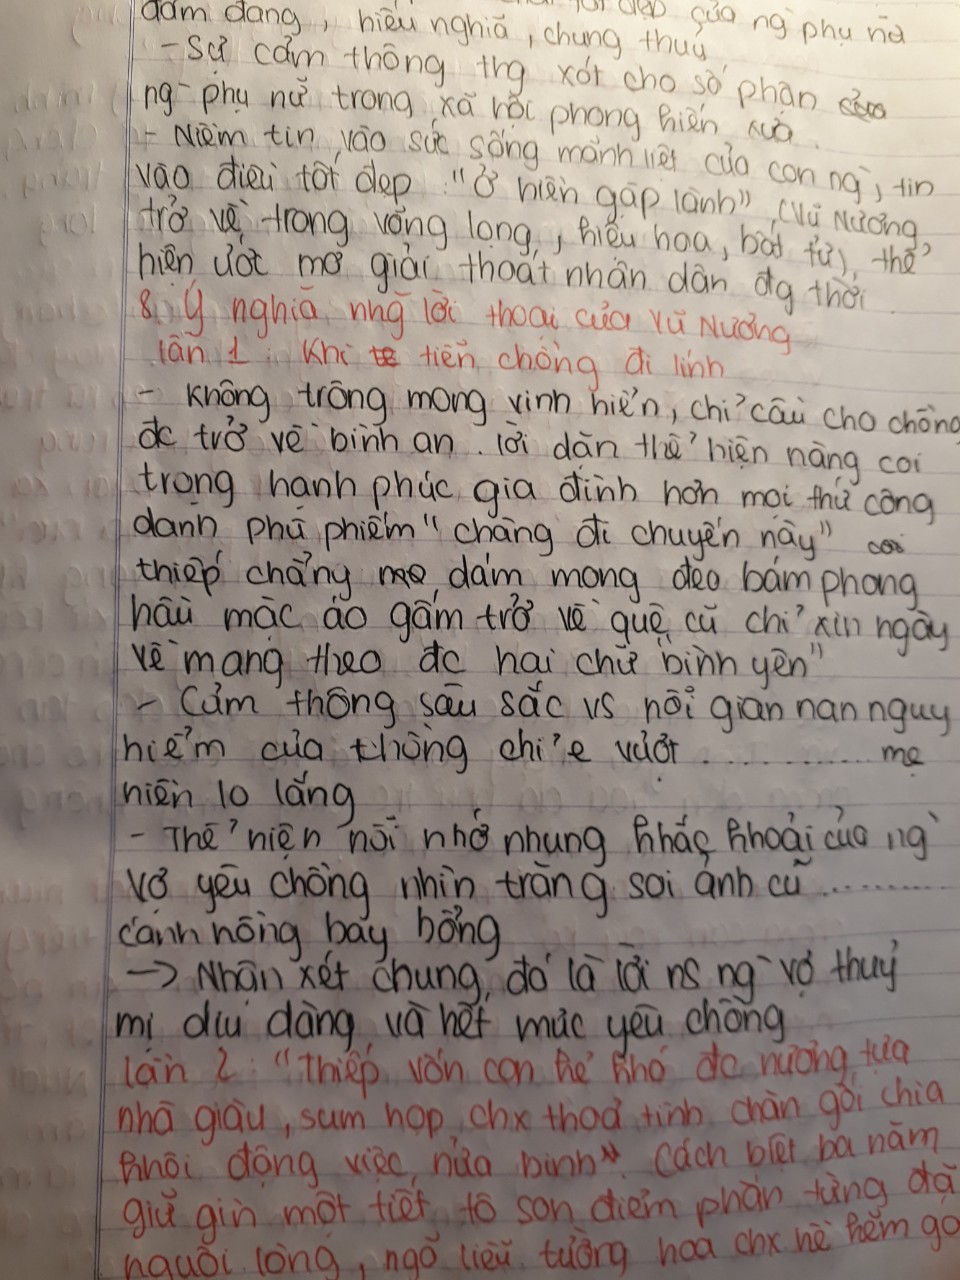 đảm đang, hiếu nghĩa, chung thuỷ đẹp của ng phụ nữ
- Sự cảm thông thg xót cho số phận
ng phụ nữ trong xã hội phong kiến xưa.
- Niềm tin vào sức sống mãnh liệt của con ng, tin
vào điều tốt đẹp "ở hiền gặp lành" (Vũ Nương
trở về trong võng lọng, kiệu hoa, bất tử), thể
hiện ước mơ giải thoát nhân dân đg thời
8. Ý nghĩa nhg lời thoại của Vũ Nương
lần 1: Khi tiễn chồng đi lính
- Không trông mong vinh hiển, chỉ cầu cho chồng
đc trở về bình an. lời dặn thể hiện nàng coi
trọng hạnh phúc gia đình hơn mọi thứ công
danh phù phiếm "chàng đi chuyến này"
thiếp chẳng dám mong đeo bám phong
hầu mặc áo gấm trở về quê cũ chỉ xin ngày
về mang theo đc hai chữ bình yên"
- Cảm thông sâu sắc vs nỗi gian nan nguy
hiểm của chồng chỉ e vượt ............ mẹ
hiền lo lắng
- Thể hiện nỗi nhớ nhung khắc khoải của ng
vợ yêu chồng nhìn trăng soi ảnh cũ ..........
cánh hồng bay bổng
-> Nhận xét chung, đó là lời ns ng vợ thuỳ
mị dịu dàng và hết mực yêu chồng
lần 2: "Thiếp vốn con kẻ khó đc nương tựa
nhà giàu, sum họp chx thoả tình chăn gối chia
khôi động việc nửa binh". Cách biệt ba năm
giữ gìn một tiết, tô son điểm phấn từng đã
nguôi lòng, ngõ liễu tường hoa chx hề bém gó